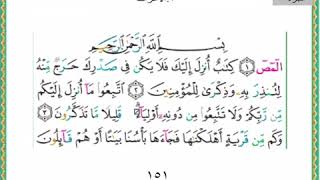 بِسْمِ ٱللَّهِ ٱلرَّحْمَٰنِ ٱلرَّحِيمِ
الٓمٓصٓ ١ كِتَٰبٌ أُنزِلَ إِلَيْكَ فَلَا يَكُن فِى صَدْرِكَ حَرَجٌ مِّنْهُ
لِتُنذِرَ بِهِۦ وَذِكْرَىٰ لِلْمُؤْمِنِينَ ٢ ٱتَّبِعُوا۟ مَآ أُنزِلَ إِلَيْكُم
مِّن رَّبِّكُمْ وَلَا تَتَّبِعُوا۟ مِن دُونِهِۦٓ أَوْلِيَآءَ ۗ قَلِيلًا مَّا تَذَكَّرُونَ ٣
وَكَم مِّن قَرْيَةٍ أَهْلَكْنَٰهَا فَجَآءَهَا بَأْسُنَا بَيَٰتًا أَوْ هُمْ قَآئِلُونَ
١٥١